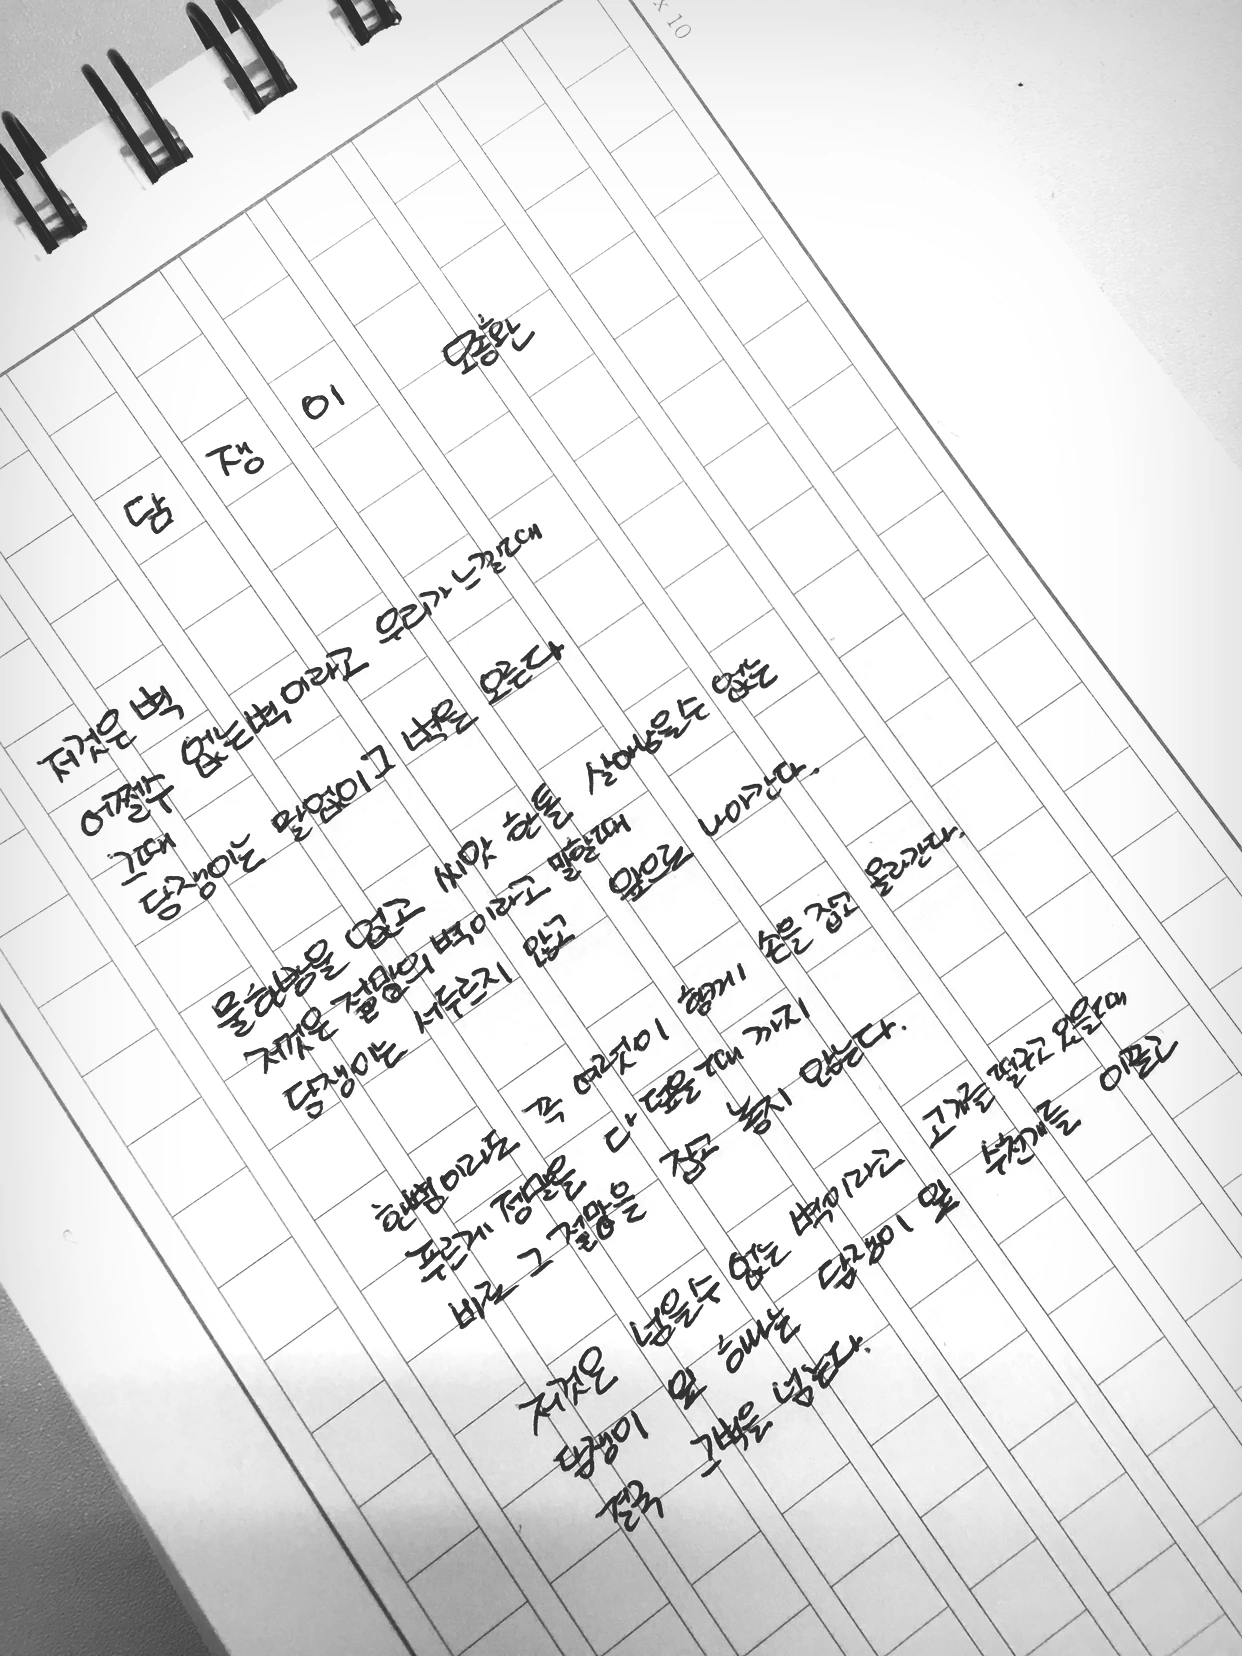 x 10
담 쟁 이 도종환
저것은 벽
어쩔수 없는 벽이라고 우리가 느낄때
그때
담쟁이는 말없이 그 벽을 오른다
물한방울 없고 씨앗 한톨 살아남을수 없는
저것은 절망의 벽이라고 말할때
담쟁이는 서두르지 않고 앞으로 나아간다.
한뼘이라도 꼭 여럿이 함께 손을 잡고 올라간다.
푸르게 절망을 다 덮을때 까지
바로 그 절망을 잡고 놓지 않는다.
저것은 넘을수 없는 벽이라고 고개를 떨구고 있을때
담쟁이 잎 하나는 담쟁이 잎 수천개를 이끌고
결국 그벽을 넘는다.